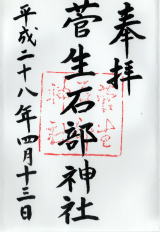 奉拝
菅生石部神社
平成二十八年四月十三日